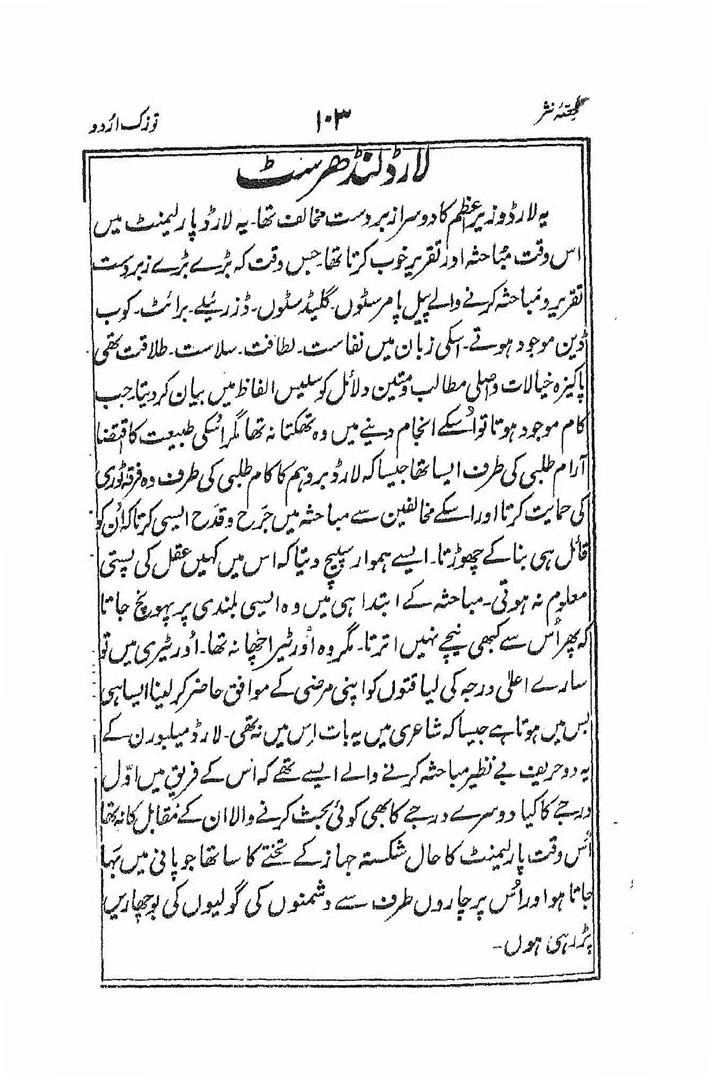 حصّہ نثر ۱۰۳ تزک اردو
لارڈ لنڈھرسٹ
یہ لارڈ وزیر اعظم کا دوسرا زبردست مخالف تھا۔ یہ لارڈ پارلیمنٹ میں
اس وقت مباحثہ اور تقریر خوب کرتا تھا۔ جس وقت کہ بڑے بڑے زبردست
تقریر و مباحثہ کرنے والے پیل پامرسٹون۔ گلیڈسٹون۔ ڈزرئیلے۔ برائٹ۔ کوب
ڈین موجود ہوتے۔ اسکی زبان میں نفاست۔ لطافت۔ سلاست۔ طلاقت تھی
پاکیزہ خیالات و اصلی مطالب و متین دلائل کو سلیس الفاظ میں بیان کر دیتا۔ جب
کام موجود ہوتا تو اُسکے انجام دینے میں وہ تھکتا نہ تھا مگر اُسکی طبیعت کا اقتضا
آرام طلبی کی طرف ایسا تھا جیسا کہ لارڈ بروہم کا کام طلبی کی طرف وہ فرقہ ٹوری
کی حمایت کرتا اور اسکے مخالفین سے مباحثہ میں جَرح و قدَح ایسی کرتا کہ اُن کو
قائل ہی بنا کے چھوڑتا۔ ایسے ہموار سپیچ دیتا کہ اس میں کہیں عقل کی پستی
معلوم نہ ہوتی۔ مباحثہ کے ابتدا ہی میں وہ ایسی بلندی پر پہونچ جاتا
کہ پھر اُس سے کبھی نیچے نہیں اترتا۔ مگر وہ اُورٹیر اچھا نہ تھا۔ اُورٹیری میں تو
سارے اعلیٰ درجہ کی لیاقتوں کو اپنی مرضی کے موافق حاضر کر لینا ایسا ہی
بس میں ہوتا ہے جیسا کہ شاعری میں یہ بات اِس میں نہ تھی۔ لارڈ میلبورن کے
یہ دو حریف بے نظیر مباحثہ کرنے والے ایسے تھے کہ اُس کے فریق میں اوّل
درجے کا کیا دوسرے درجے کا بھی کوئی بحث کرنے والا ان کے مُقابل کا نہ تھا
اُس وقت پارلیمنٹ کا حال شکستہ جہاز کے تختے کا سا تھا جو پانی میں بہا
جاتا ہو اور اُس پر چاروں طرف سے دشمنوں کی گولیوں کی بوچھاریں
پڑ رہی ہوں۔